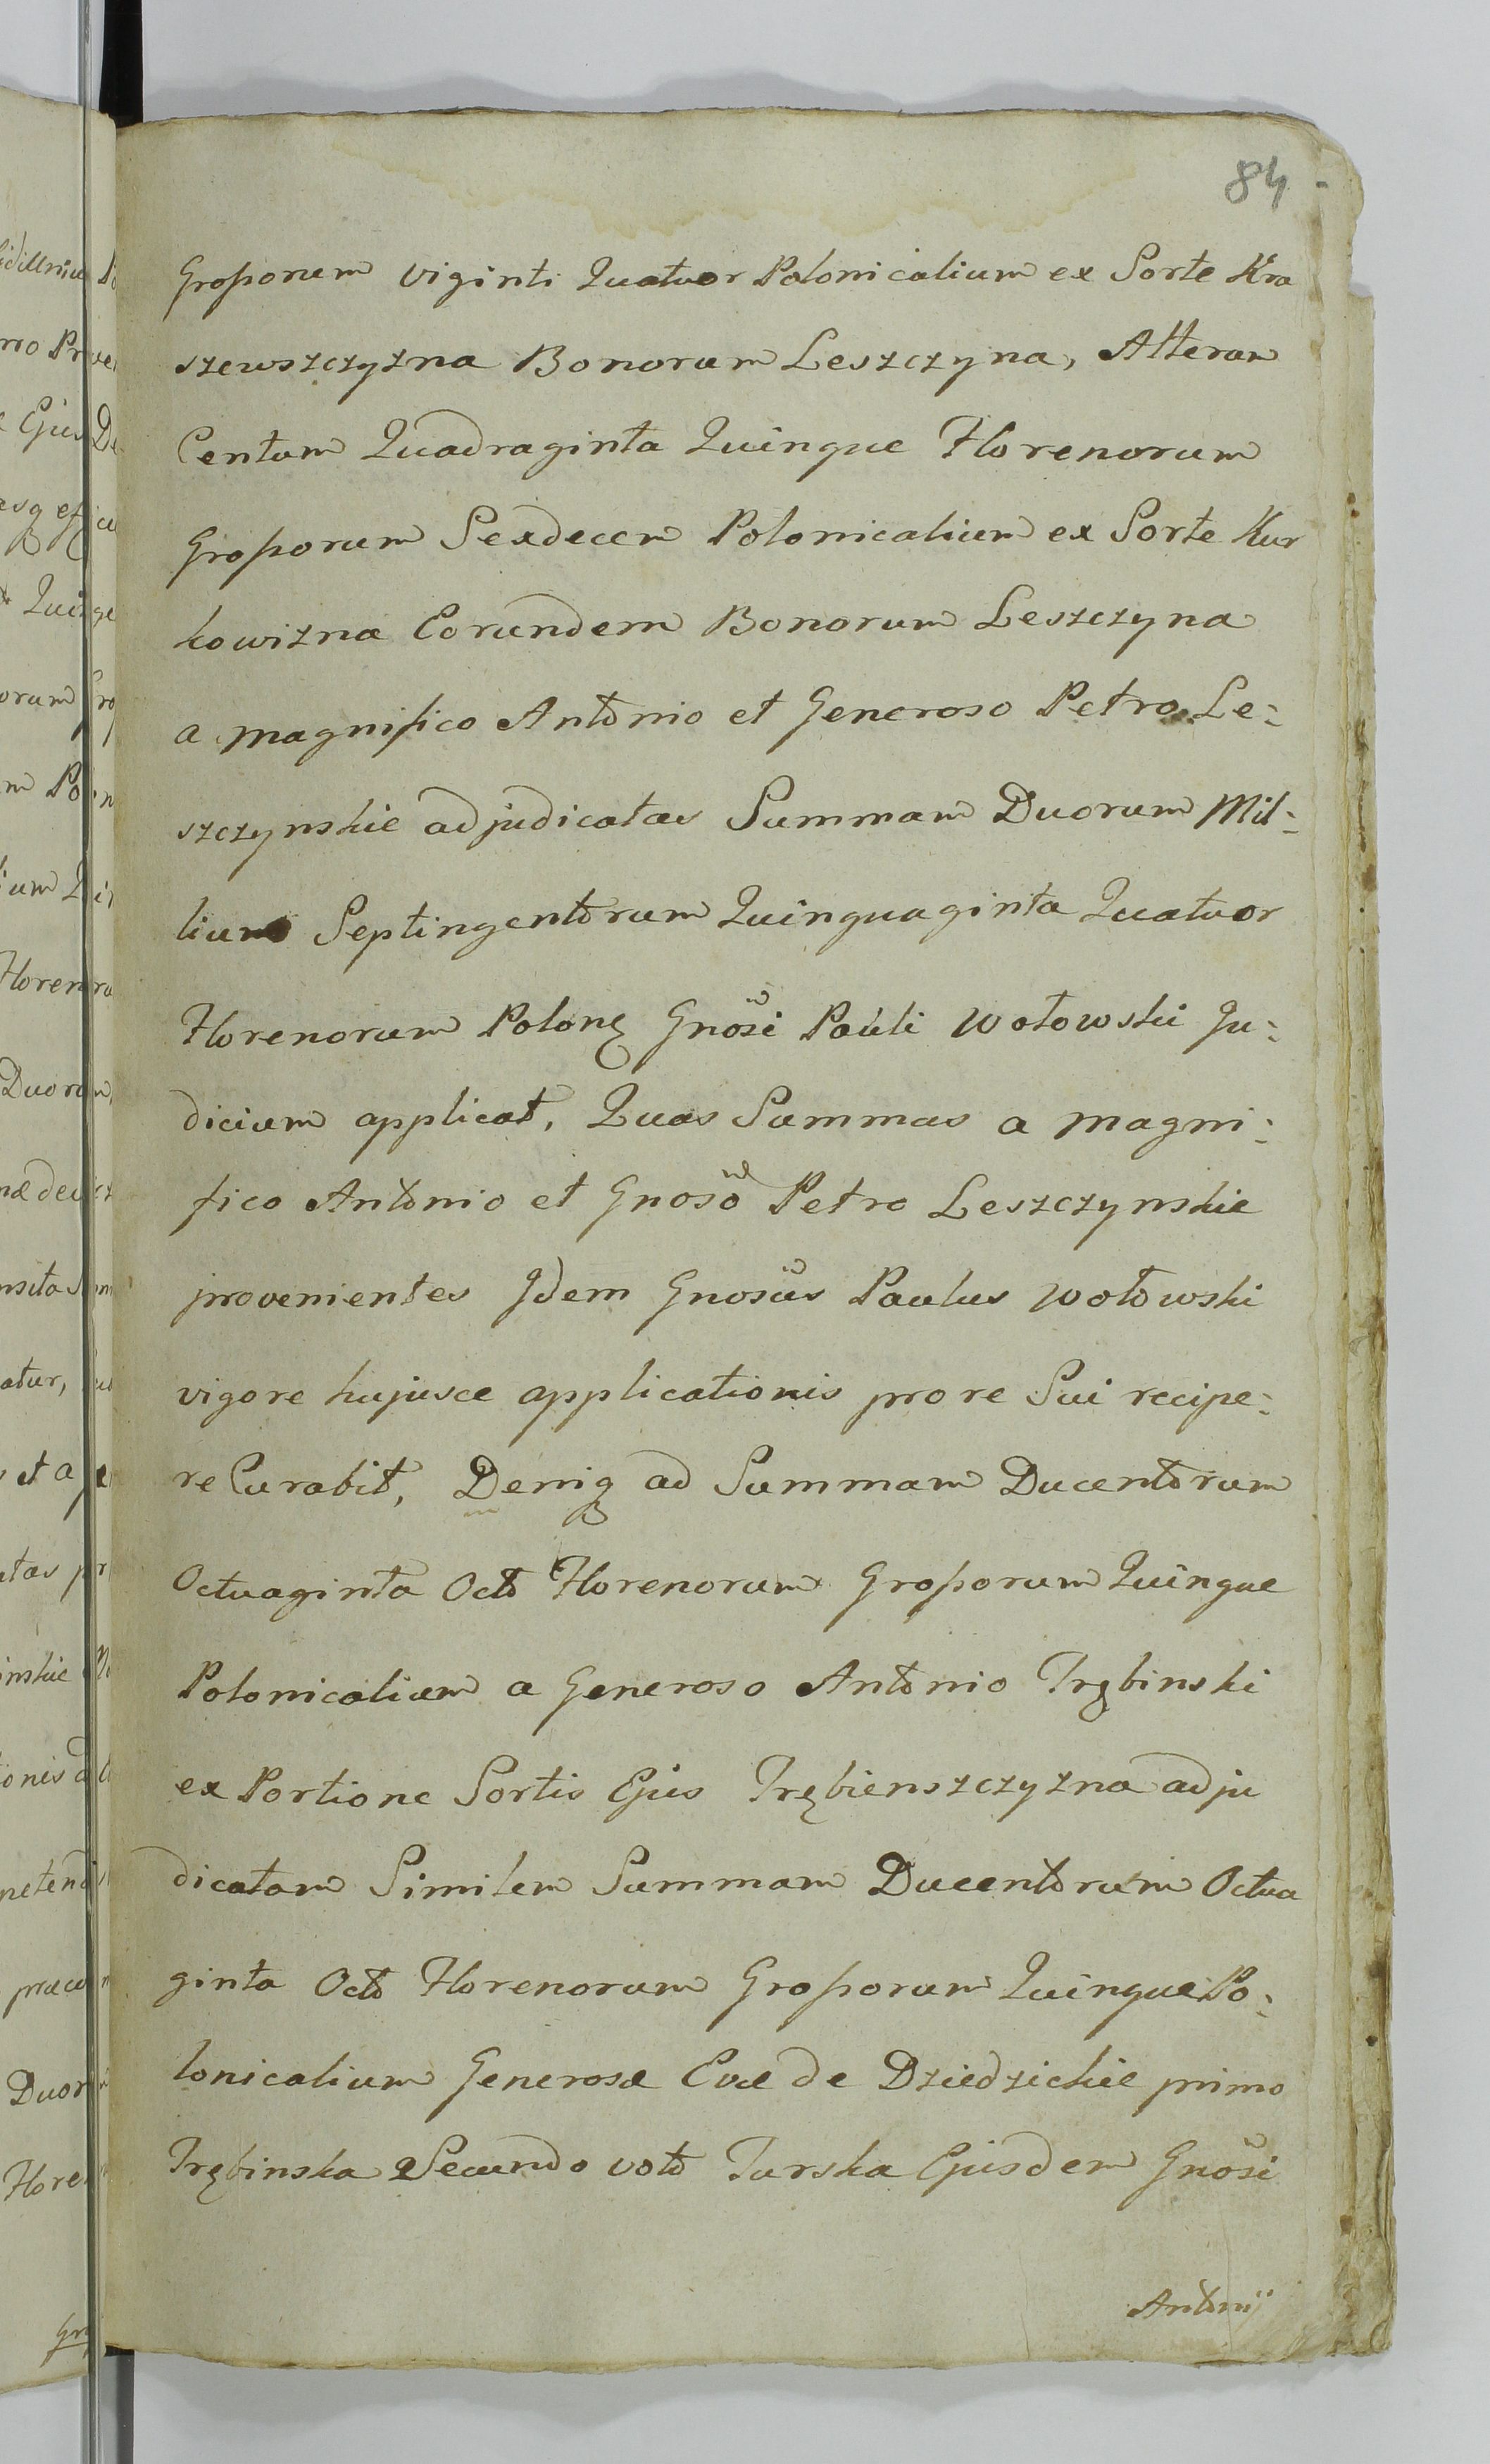 84
Grossorum viginti Quatuor Polonicalium ex Sorte Kra
szewszczyzna Bonorum Leszczyna, Alteram
Centum Quadraginta Quinque Florenorum
Grossorum Sexdecem Polonicalium ex Sorte Kur
kowizna Eorundem Bonorum Leszczyna
a magnifico Antonio et Generoso Petro Le:
szczynskie adjudicatas Summam Duorum Mil:
lium Septingentorum Quinquaginta Quatuor
Florenorum Polonę Gnosi Pauli Wołowski Ju:
dicium applicat, Quas Summas a magni:
fico Antonio et Gnoso Petro Leszczynskie
provenientes Idem Gnosus Paulus Wołowski
vigore hujusce applicationis pro re Sui recipe:
re Curabit, Deniq ad Summam Ducentorum
Octuaginta Octo Florenorum Grossorum Quinque
Polonicalium a Generoso Antonio Trębinski
ex Portione Sortis Ejus Trębienszczyzna adju
dicatam Similem Summam Ducentorum Octua
ginta Octo Florenorum Grossorum Quinque Po:
lonicalium Generosæ Evæ de Dziedzickie primo
Trębinska Secundo voto Turska Ejusdem Gnosi
Antonij